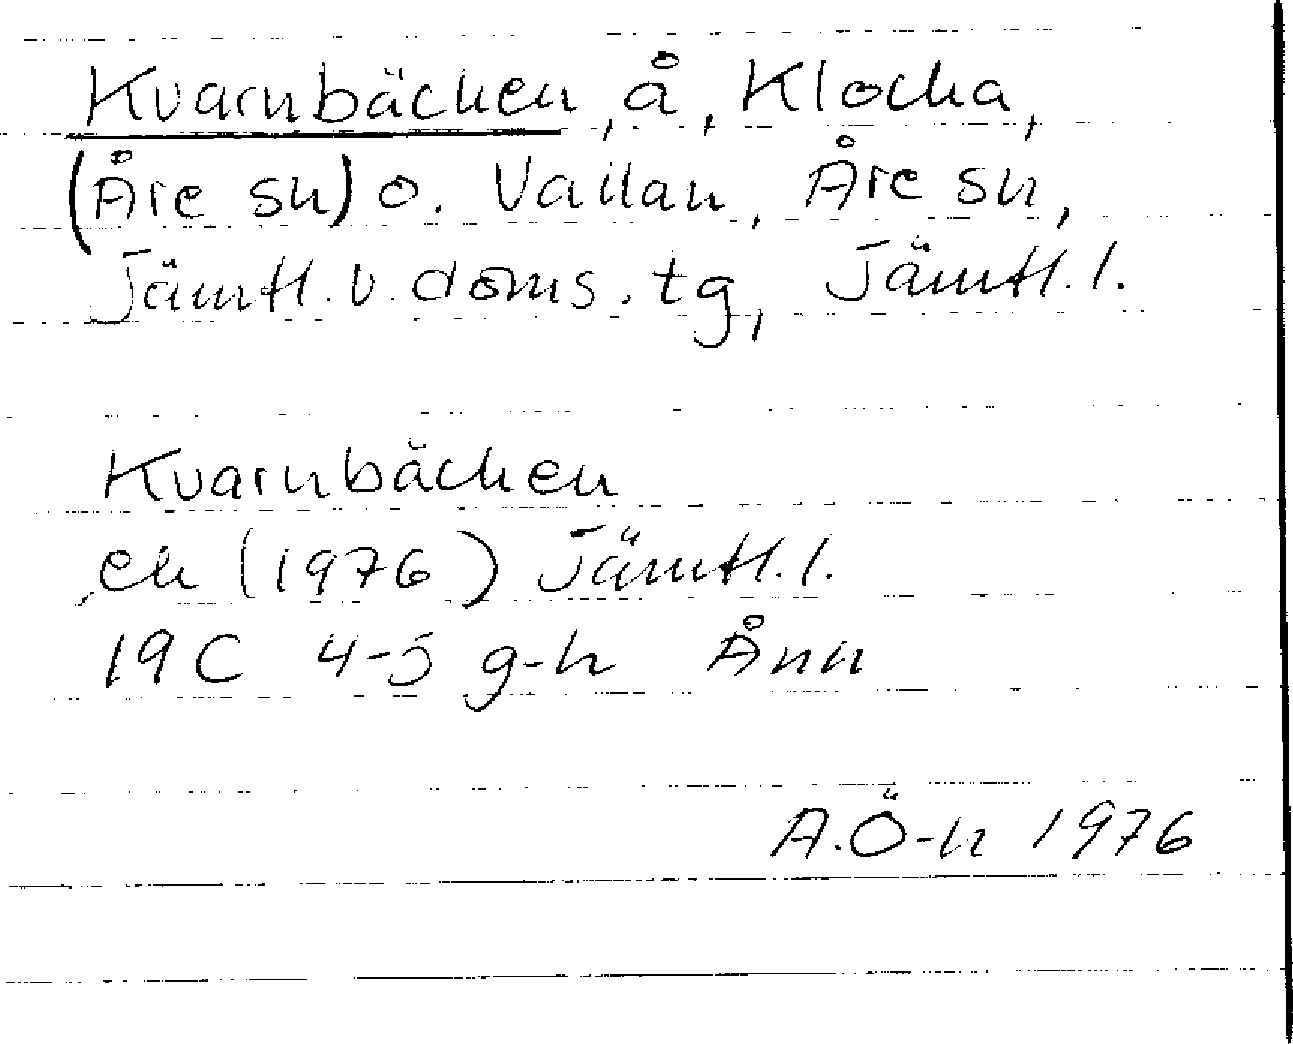 Kvarnbäcken, å, Klocka,
(Åre sn) o. Vallan, Åre sn,
Jämtl. v. doms. tg, Jämtl. l.
Kvarnbäcken
ek (1976) Jämtl. l.
19C 4-5 g-h Ånn
A.Ö-n 1976